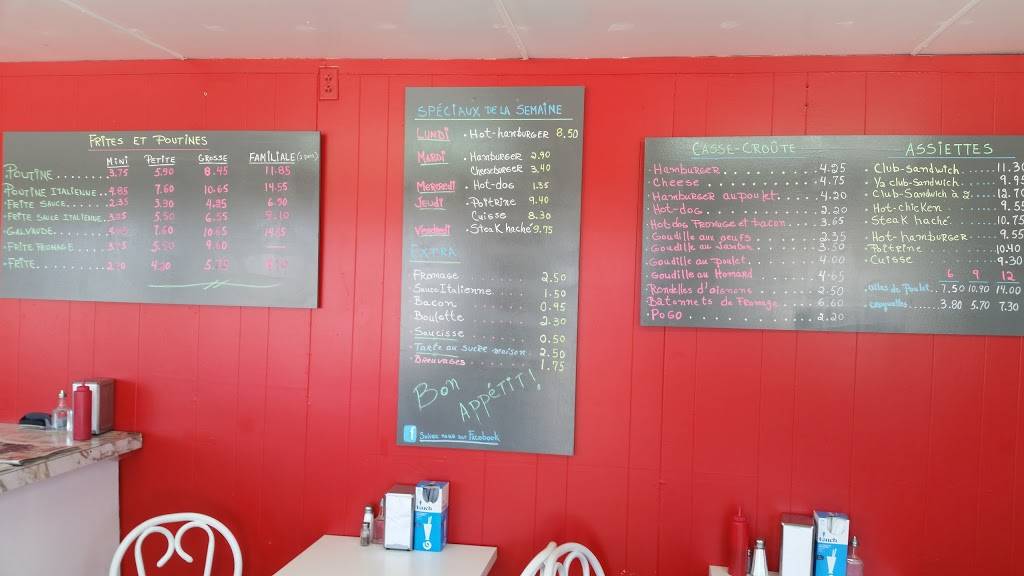 FRITES ET POUTINES
MINI PETITE GROSSE FAMILIALE
POUTINE 3.75 5.90 8.45 11.85
POUTINE ITALIENNE 4.85 7.60 10.65 14.55
FRITE SAUCE 2.35 3.90 4.85 6.90
FRITE SAUCE ITALIENNE 5.50 6.55
GALVAUDE 7.60 10.65
FRITE FROMAGE 9.60
FRITE
SPÉCIAUX DE LA SEMAINE
LUNDI • Hot-hamburger 8.50
MARDI • Hamburger 2.90
Cheeseburger 3.40
Mercredi • Hot-dog 1.35
JEUDI • Poitrine 9.40
Cuisse 8.30
Vendredi • Steak haché 9.75
EXTRA
Fromage 2.50
Sauce Italienne 1.50
Bacon 0.95
Boulette 2.30
Saucisse 0.50
• Tarte au sucre maison 2.50
Breuvages 1.75
Bon
APPÉTIT!
f Suivez nous sur Facebook
CASSE-CROÛTE
• Hamburger 4.25
• Cheese 4.75
• Hamburger au poulet 4.20
• Hot-dog 2.20
• Hot dog Fromage et bacon 3.65
• Goudille aux oeufs 2.35
• Goudille au Jambon
• Goudille au poulet 4.00
• Goudille au Homard 4.65
• Rondelles d'oignons 2.50
• Bâtonnets de Fromage 6.60
• POGO 2.20
ASSIETTES
• Club-Sandwich 11.30
• ½ club-Sandwich 9.95
• Club-Sandwich à 2 12.70
• Hot-chicken 9.55
• Steak haché 10.75
• Hot-hamburger 9.55
• Poitrine 10.40
• Cuisse 9.30
6 9 12
ailes de Poulet 7.50 10.90 14.00
croquettes 3.80 5.70 7.30